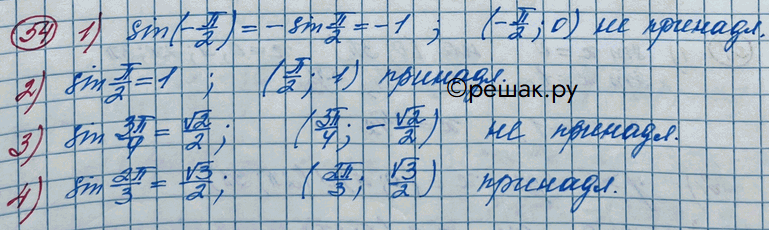 54) 1) sin(-π/2) = -sin π/2 = -1 ; (-π/2 ; 0) не принадл.
2) sin π/2 = 1 ; (π/2 ; 1) принадл.
©решак.ру
3) sin 3π/4 = √2/2 ; (3π/4 ; -√2/2) не принадл.
4) sin 2π/3 = √3/2 ; (2π/3 ; √3/2) принадл.